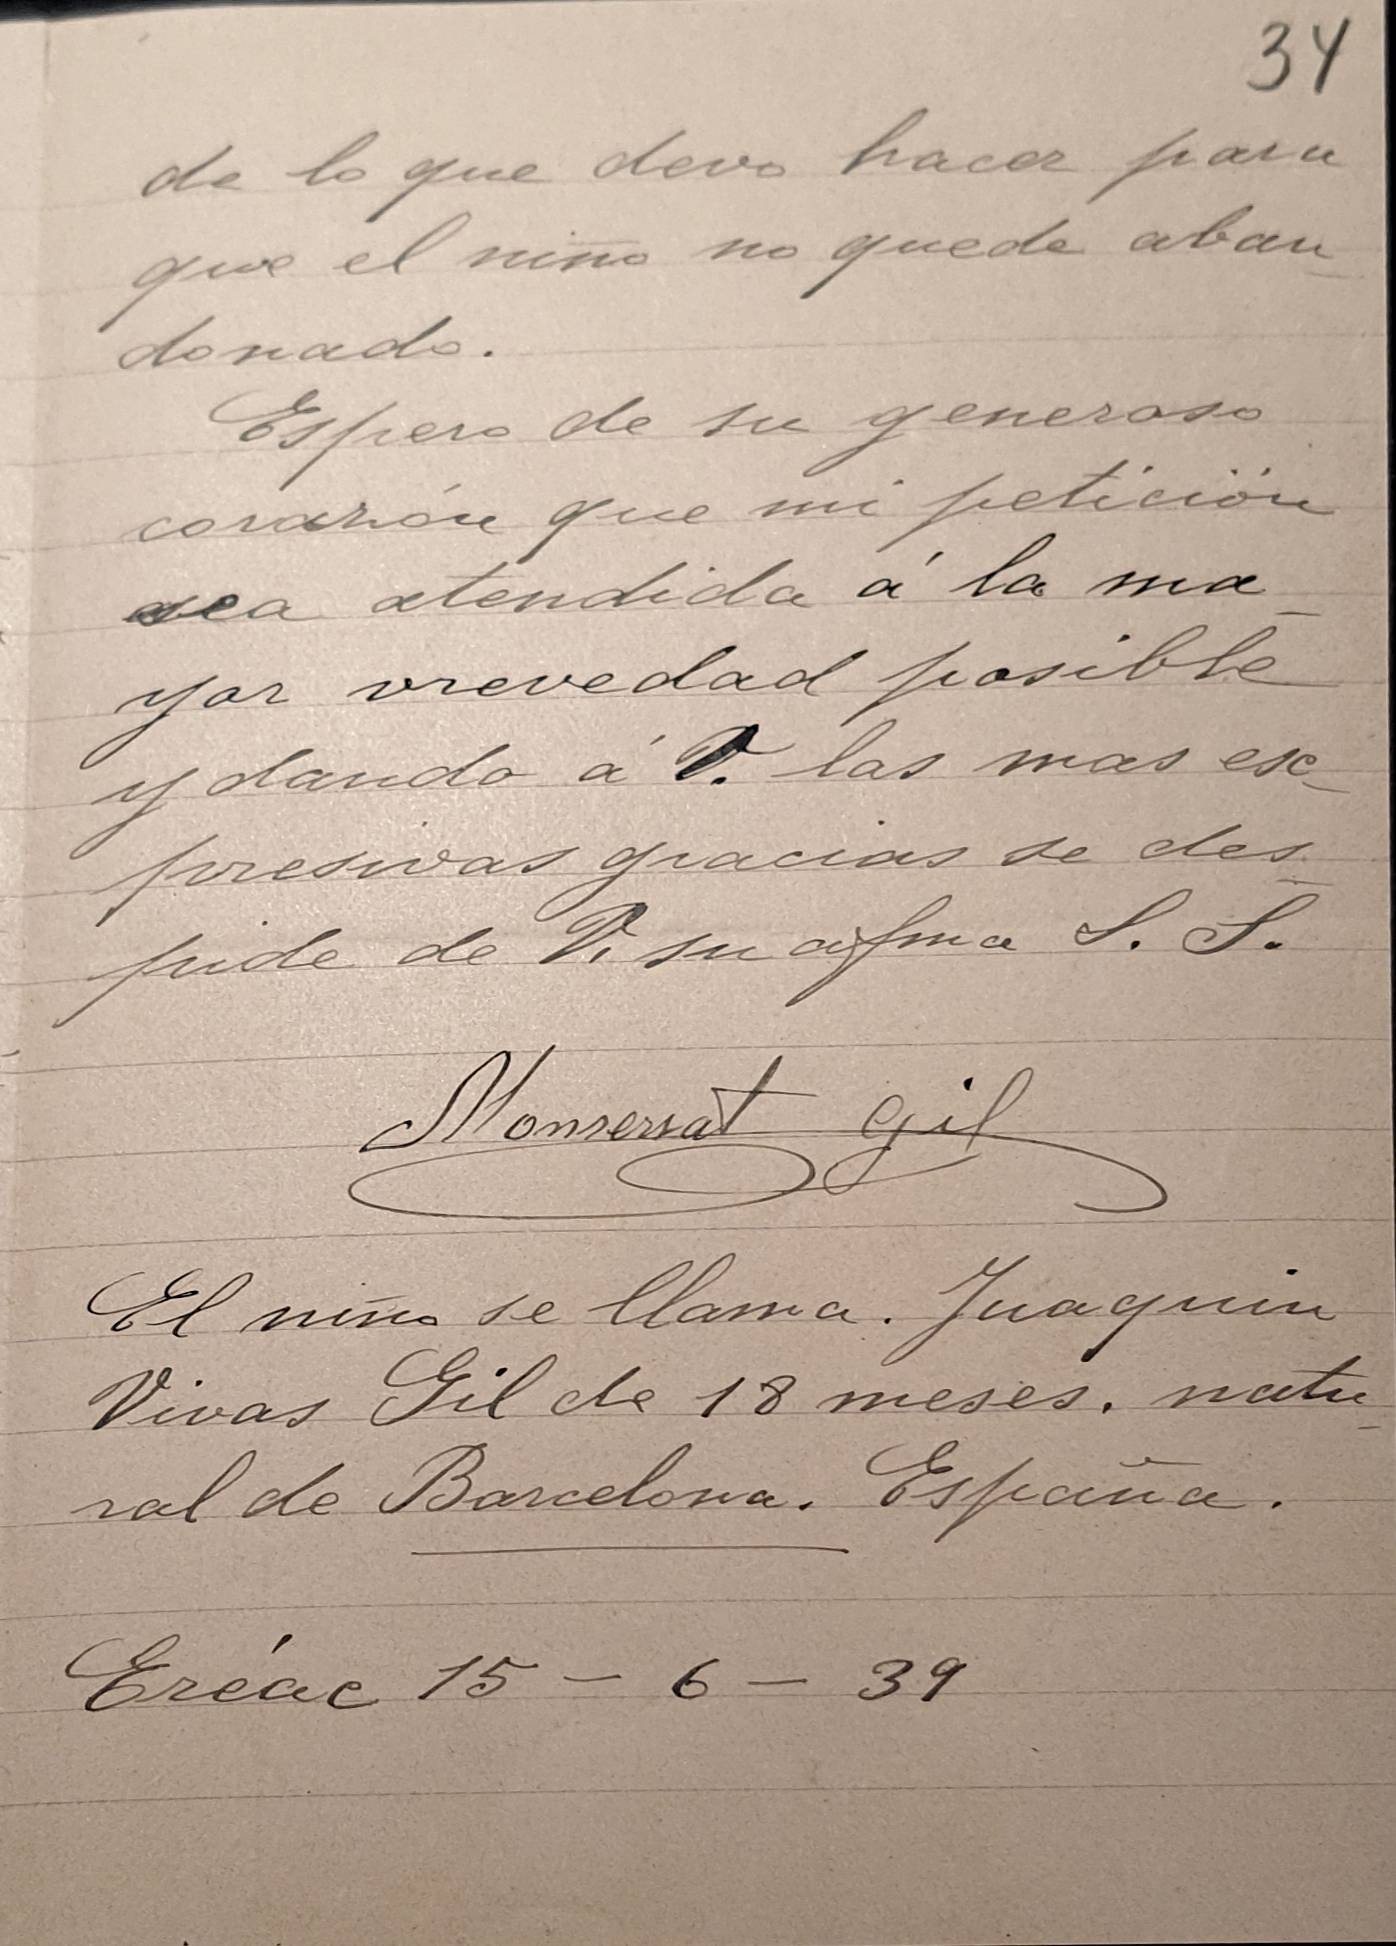 34
de lo que devo hacer para
que el niño no quede aban_
donado.
Espero de su generoso
corazón que mi petición
sea atendida á la ma_
yor vrevedad posible
y dando á V. las mas esc_
presivas gracias se des_
pide de V. su afma S. S.
Monserrat Gil
El niño se llama. Juaquin
Vivas Gil de 18 meses. natu_
ral de Barcelona. España.
Eréac 15 - 6 - 39